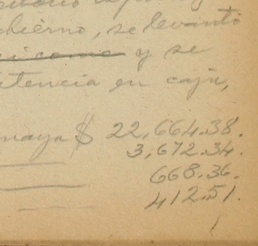 obierno, se levantó
y se
tencia en caja,
maya $ 22,664.38.
3,672.34.
668.36.
412.51.